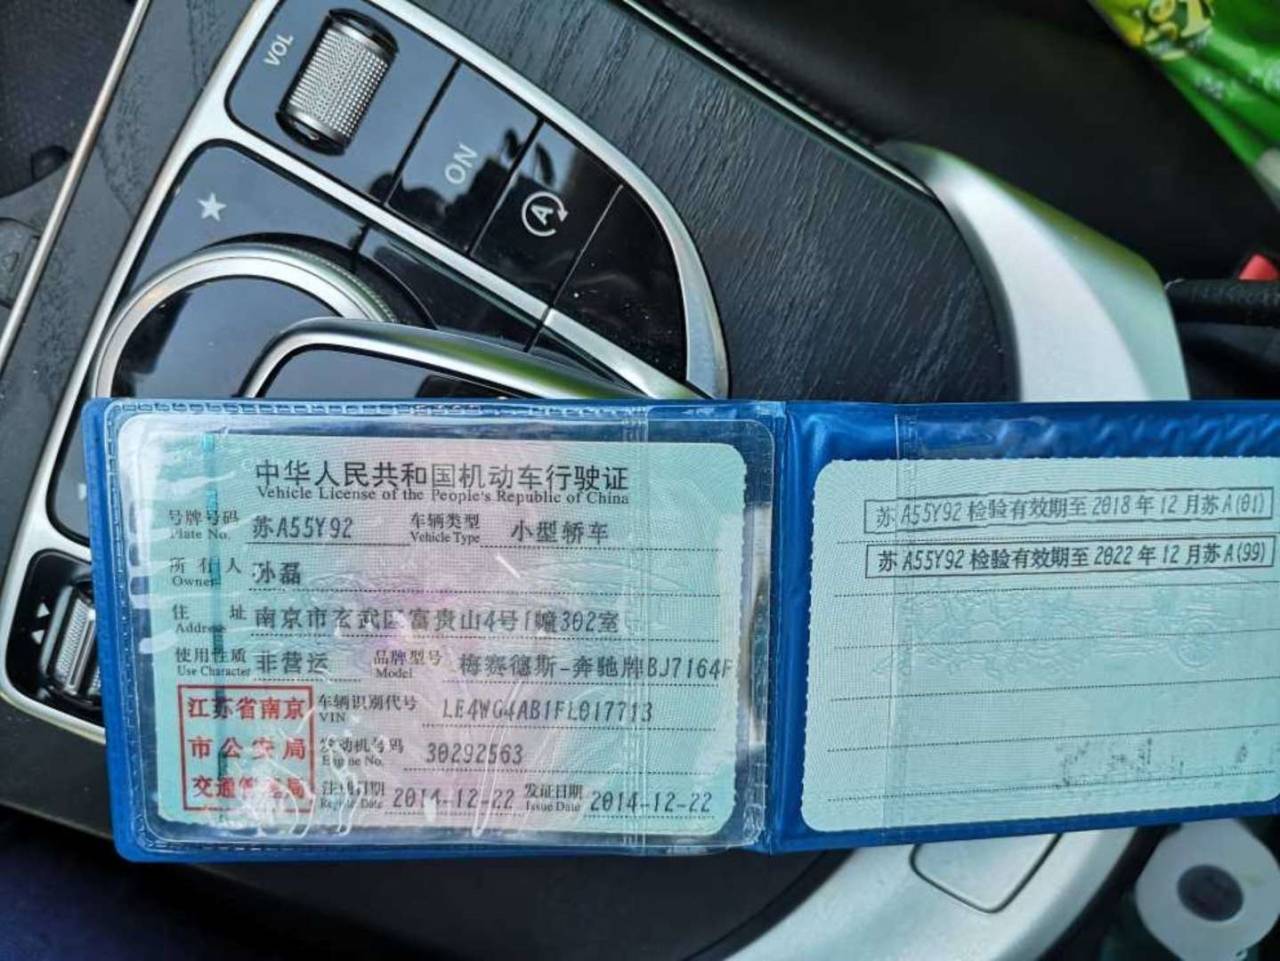 VOL
ON
A
中华人民共和国机动车行驶证
Vehicle License of the People's Republic of China
号牌号码 苏A55Y92 车辆类型 小型轿车
Plate No. Vehicle Type
所有人 孙磊
Owner
住 址 南京市玄武区富贵山4号1幢302室
Address
使用性质 非营运 品牌型号 梅赛德斯-奔驰牌BJ7164F
Use Character Model
江苏省南京
市公安局
交通管理局
车辆识别代号 LE4WG4AB1FL017713
VIN
发动机号码 30292563
Engine No.
注册日期 2014-12-22 发证日期 2014-12-22
Register Date Issue Date
苏A55Y92检验有效期至2018年12月苏A(01)
苏A55Y92检验有效期至2022年12月苏A(99)